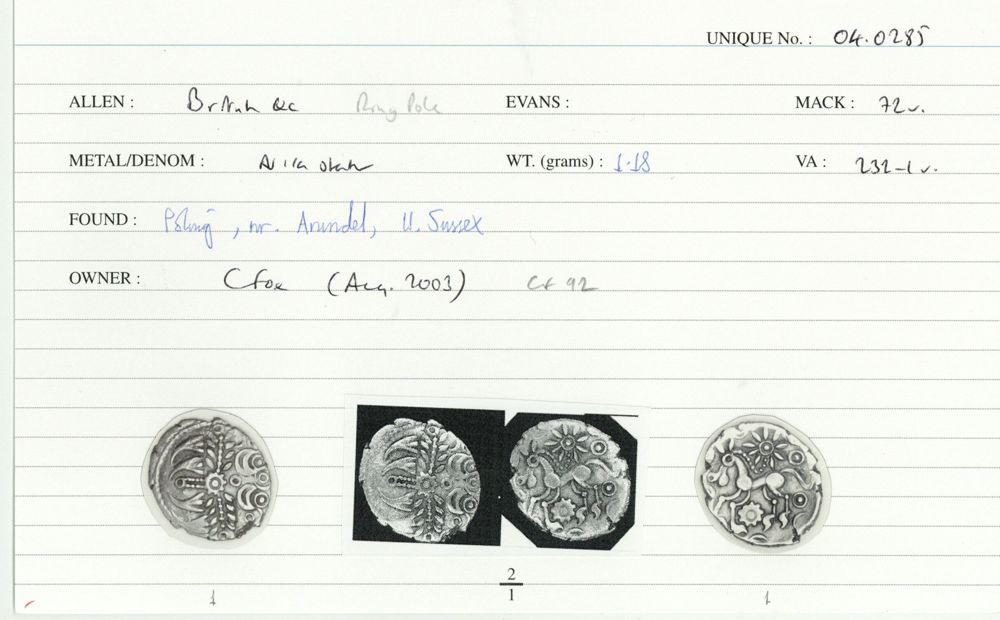 UNIQUE No. : 04.0285
ALLEN : British Qc Ring Pole EVANS : MACK : 72v.
METAL/DENOM : AV 1/4 stater WT. (grams) : 1.18 VA : 232-1 v.
FOUND : Poling, nr. Arundel, W. Sussex
OWNER : C Foe (Aug. 2003) CF 92
2
1
1 1